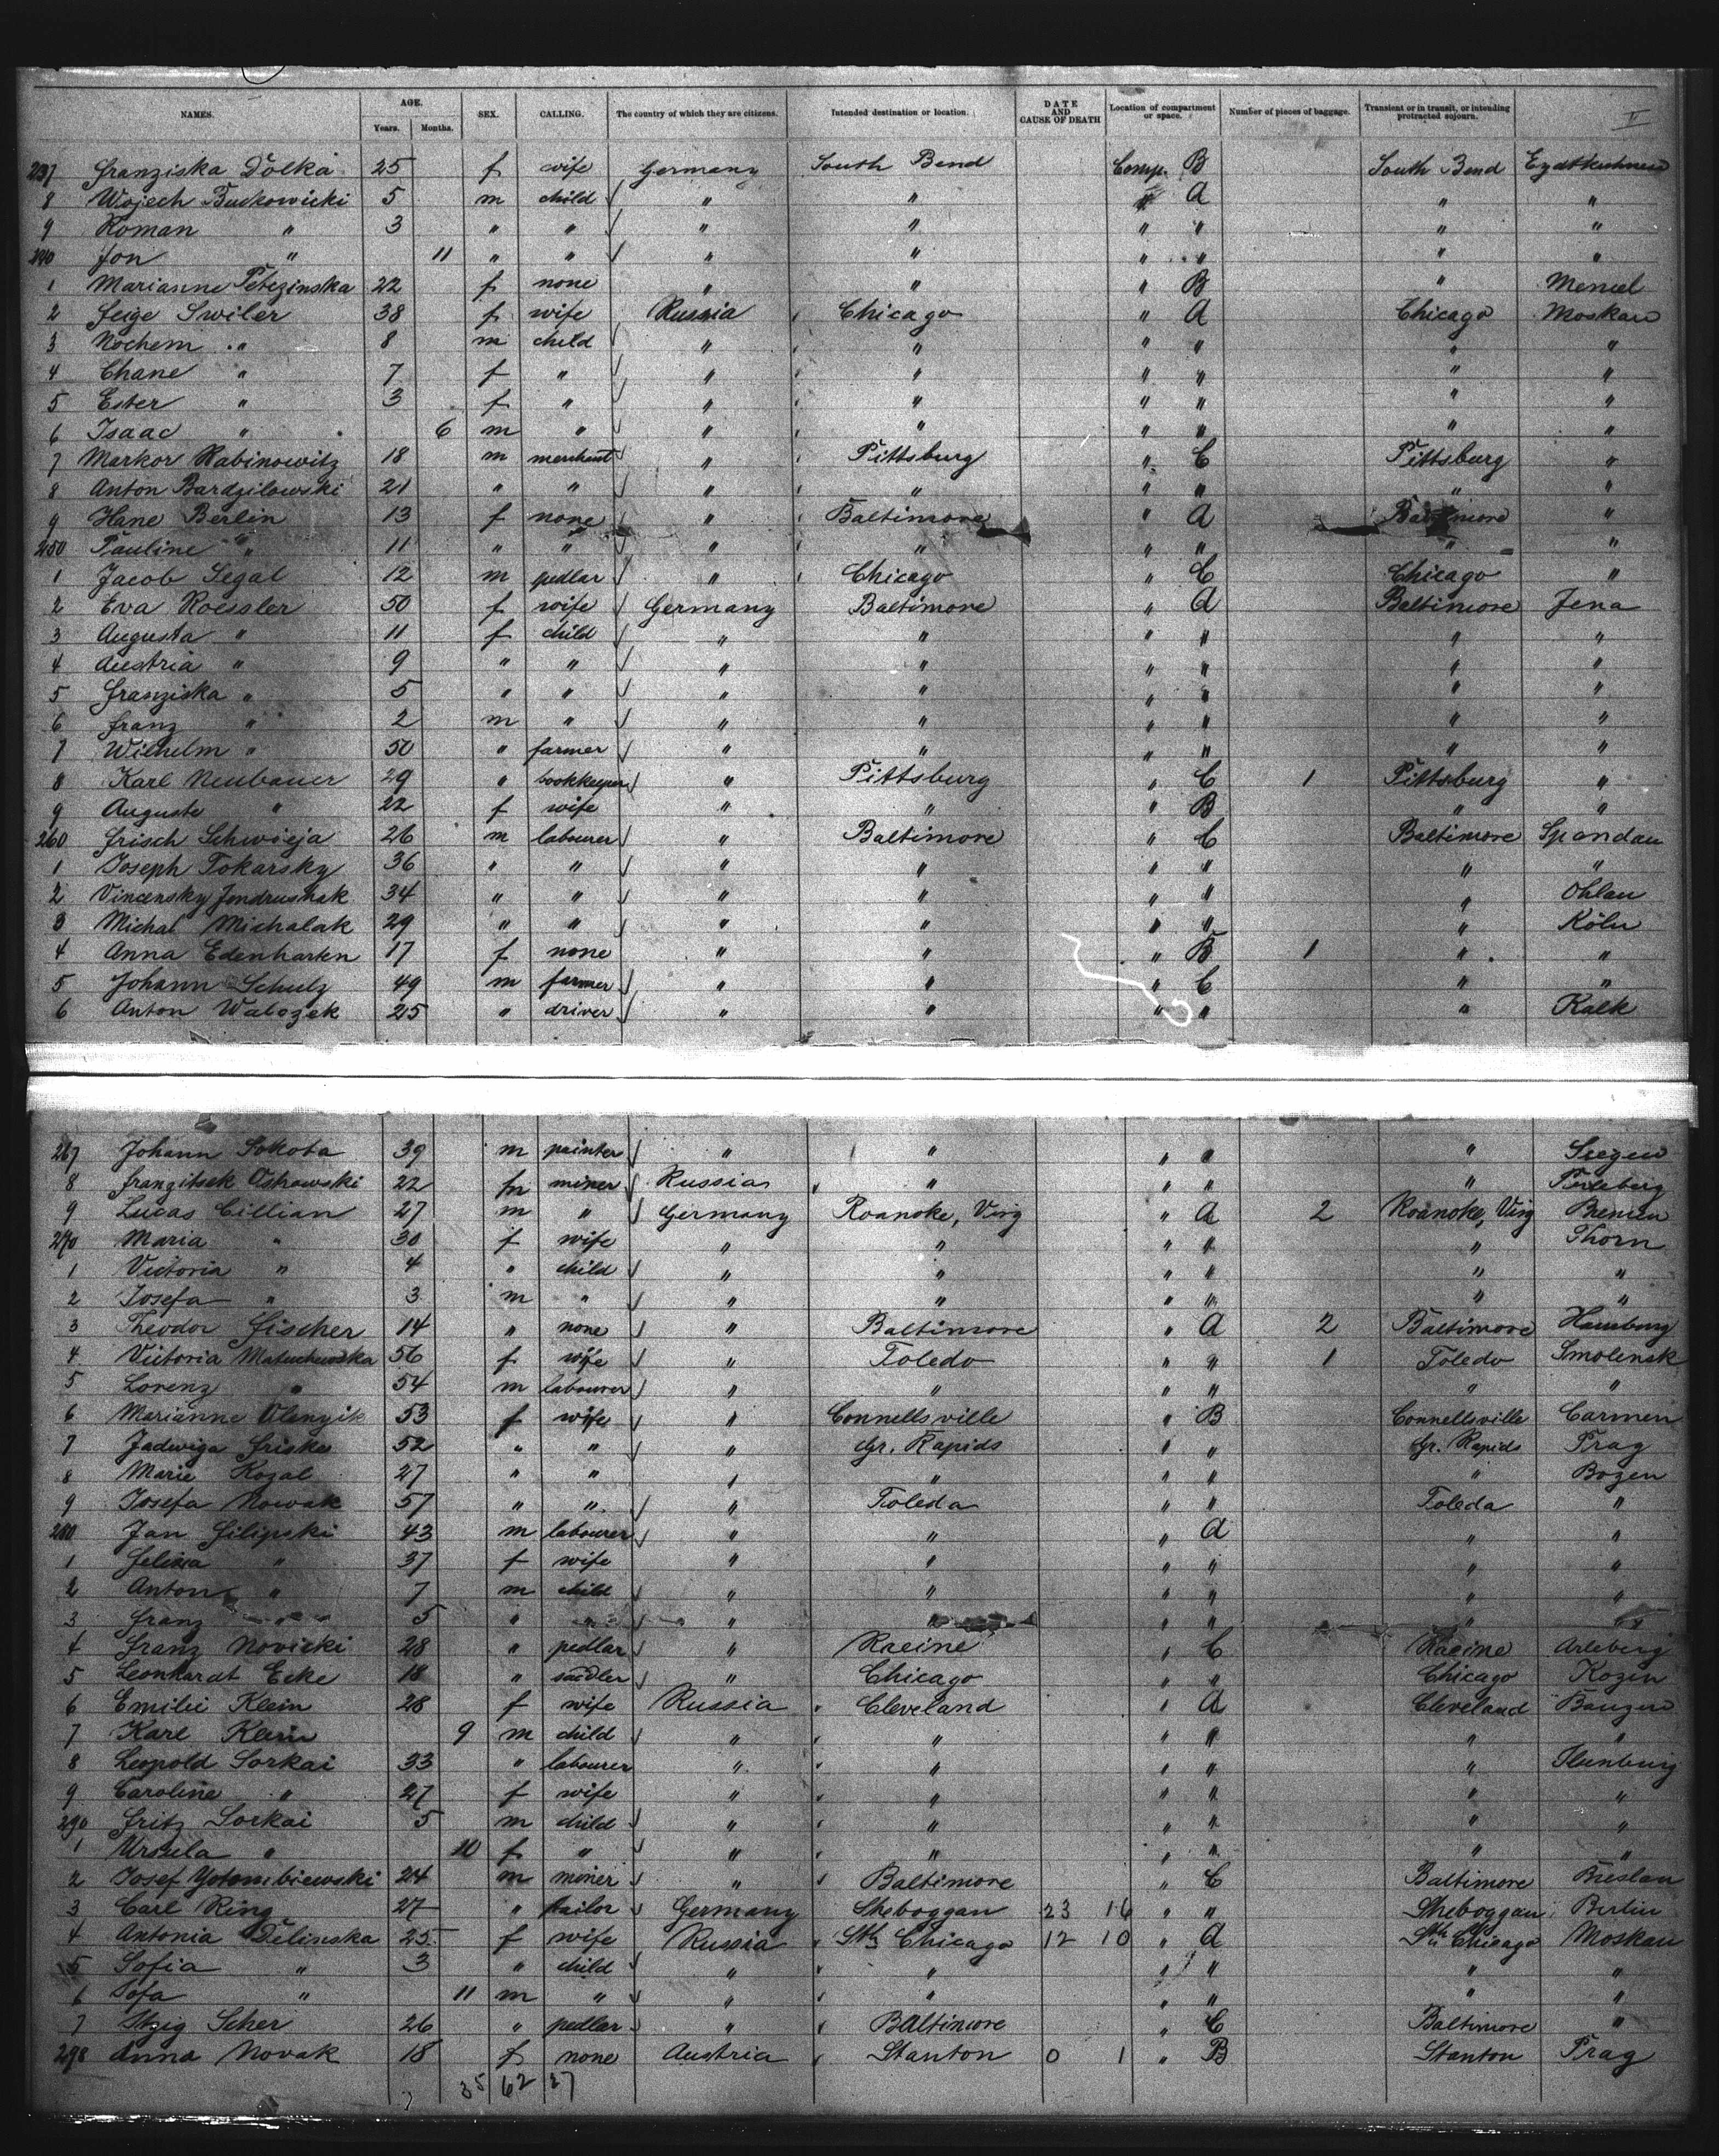 NAMES. AGE. Years. Months. SEX. CALLING. The country of which they are citizens. Intended destination or location. DATE AND CAUSE OF DEATH Location of compartment or space. Number of pieces of baggage. Transient or in transit, or intending protracted sojourn. V
237 Franziska Dolka 25 f wife Germany South Bend Comp. B South Bend Eydtkuhnen
8 Wojech 5 m child " " " A " "
9 Roman " 3 " " " " " " " "
240 Jon " 11 " " " " " " " "
1 Marianne 22 f none " " " B " Memel
2 Feige Swiler 38 f wife Russia Chicago " A Chicago Moskau
3 Nochem " 8 m child " " " " " "
4 Chane " 7 f " " " " " " "
5 Ester " 3 f " " " " " " "
6 Isaac " 6 m " " " " " " "
7 Markor Rabinowitz 18 m merchant " Pittsburg " C Pittsburg "
8 Anton Bardzilowski 21 " " " " " " " "
9 Hane Berlin 13 f none " Baltimore " A Baltimore "
250 Pauline " 11 " " " " " " " "
1 Jacob Segal 12 m pedlar " Chicago " C Chicago "
2 Eva Roessler 50 f wife Germany Baltimore " A Baltimore Jena
3 Augusta " 11 f child " " " " " "
4 Austria " 9 " " " " " " " "
5 Franziska " 5 " " " " " " " "
6 Franz " 2 m " " " " " " "
7 Wilhelm " 50 " farmer " " " " " "
8 Karl Neubauer 29 " bookkeeper " Pittsburg " C 1 Pittsburg "
9 Auguste " 22 f wife " " " B " "
260 Frisch Schwieja 26 m labourer " Baltimore " C Baltimore Spandau
1 Joseph Tokarsky 36 " " " " " " " "
2 Vincensky Jendrushak 34 " " " " " " " Ohlau
3 Michal Michalak 29 " " " " " " " Köln
4 Anna Edenharten 17 f none " " " B 1 " "
5 Johann Schulz 49 m farmer " " " C " "
6 Anton Walozek 25 " driver " " " " " Kalk
267 Johann Sokota 39 m painter " " " " " Siegen
8 Franzitsek Ostrowski 22 m miner Russia " " " "
9 Lucas Cillian 27 m " Germany Roanoke, Virg " A 2 Roanoke, Virg Bremen
270 Maria " 30 f wife " " " " " Thorn
1 Victoria " 4 " child " " " " " "
2 Josefa " 3 m " " " " " " "
3 Theodor Fischer 14 " none " Baltimore " A 2 Baltimore Hamburg
4 Victoria Matuchewska 56 f wife " Toledo " " 1 Toledo Smolensk
5 Lorenz " 54 m labourer " " " " " "
6 Marianne Olenzik 53 f wife " Connellsville " B Connellsville Carmen
7 Jadwiga Friske 52 " " " Gr. Rapids " " Gr. Rapids Prag
8 Marie Kozal 27 " " " " " " " Bozen
9 Josefa Nowak 57 " " " Toleda " " Toleda "
280 Jan Filipski 43 m labourer " " " A " "
1 Felixia " 37 f wife " " " " " "
2 Anton " 7 m child " " " " " "
3 Franz " 5 " " " " " " " "
4 Franz Novicki 28 " pedlar " Racine " C Racine Arleberg
5 Leonhardt Ecke 18 " saddler " Chicago " " Chicago Kozen
6 Emilie Klein 28 f wife Russia Cleveland " A Cleveland Bauzen
7 Karl Klein 9 m child " " " " " "
8 Leopold Sorkai 33 " labourer " " " " "
9 Caroline " 27 f wife " " " " " "
290 Fritz Sorkai 5 m child " " " " " "
1 Ursula " 10 f " " " " " " "
2 Josef 24 m miner " Baltimore " C Baltimore Breslau
3 Carl Ring 27 " tailor Germany Sheboggan 23 16 " " Sheboggan Berlin
4 Antonia Delinska 25 f wife Russia Sth Chicago 12 10 " A Sth Chicago Moskau
5 Sofia " 3 " child " " " " " "
6 " 11 m " " " " " " "
7 Itzig Scher 26 " pedlar " Baltimore " C Baltimore "
298 Anna Novak 18 f none Austria Stanton 0 1 " B Stanton Prag
35 62 37